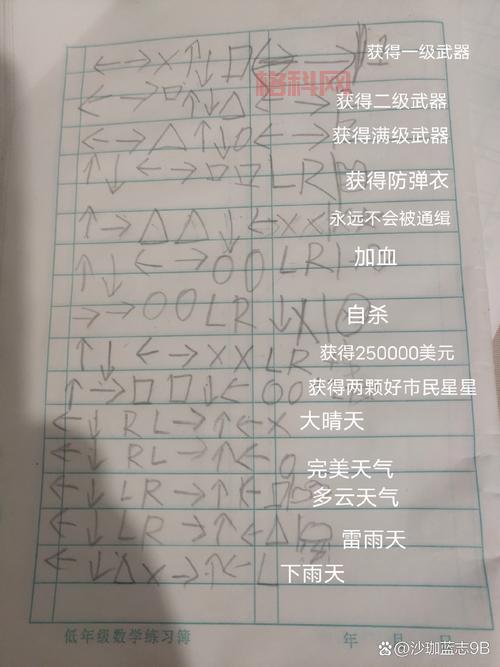 ←→×↑↓□←→ 获得一级武器
格科网
←→□↑↓△←→ 获得二级武器
←→△↑↓○←→ 获得满级武器
↑↓←→□□LR 获得防弹衣
↑→△△↓←×× 永远不会被通缉
↑↓←→○○LR 加血
→→○○LR↓× 自杀
↑↓←→××LR 获得250000美元
↑→□□↓←○○ 获得两颗好市民星星
←↓RL→↑←× 大晴天
←↓RL→↑←○ 完美天气
←↓LR→↑←□ 多云天气
←↓LR→↑←△ 雷雨天
←↓△×→↑←L 下雨天
低年级数学练习簿 年 月 日
@沙珈蓝志9B